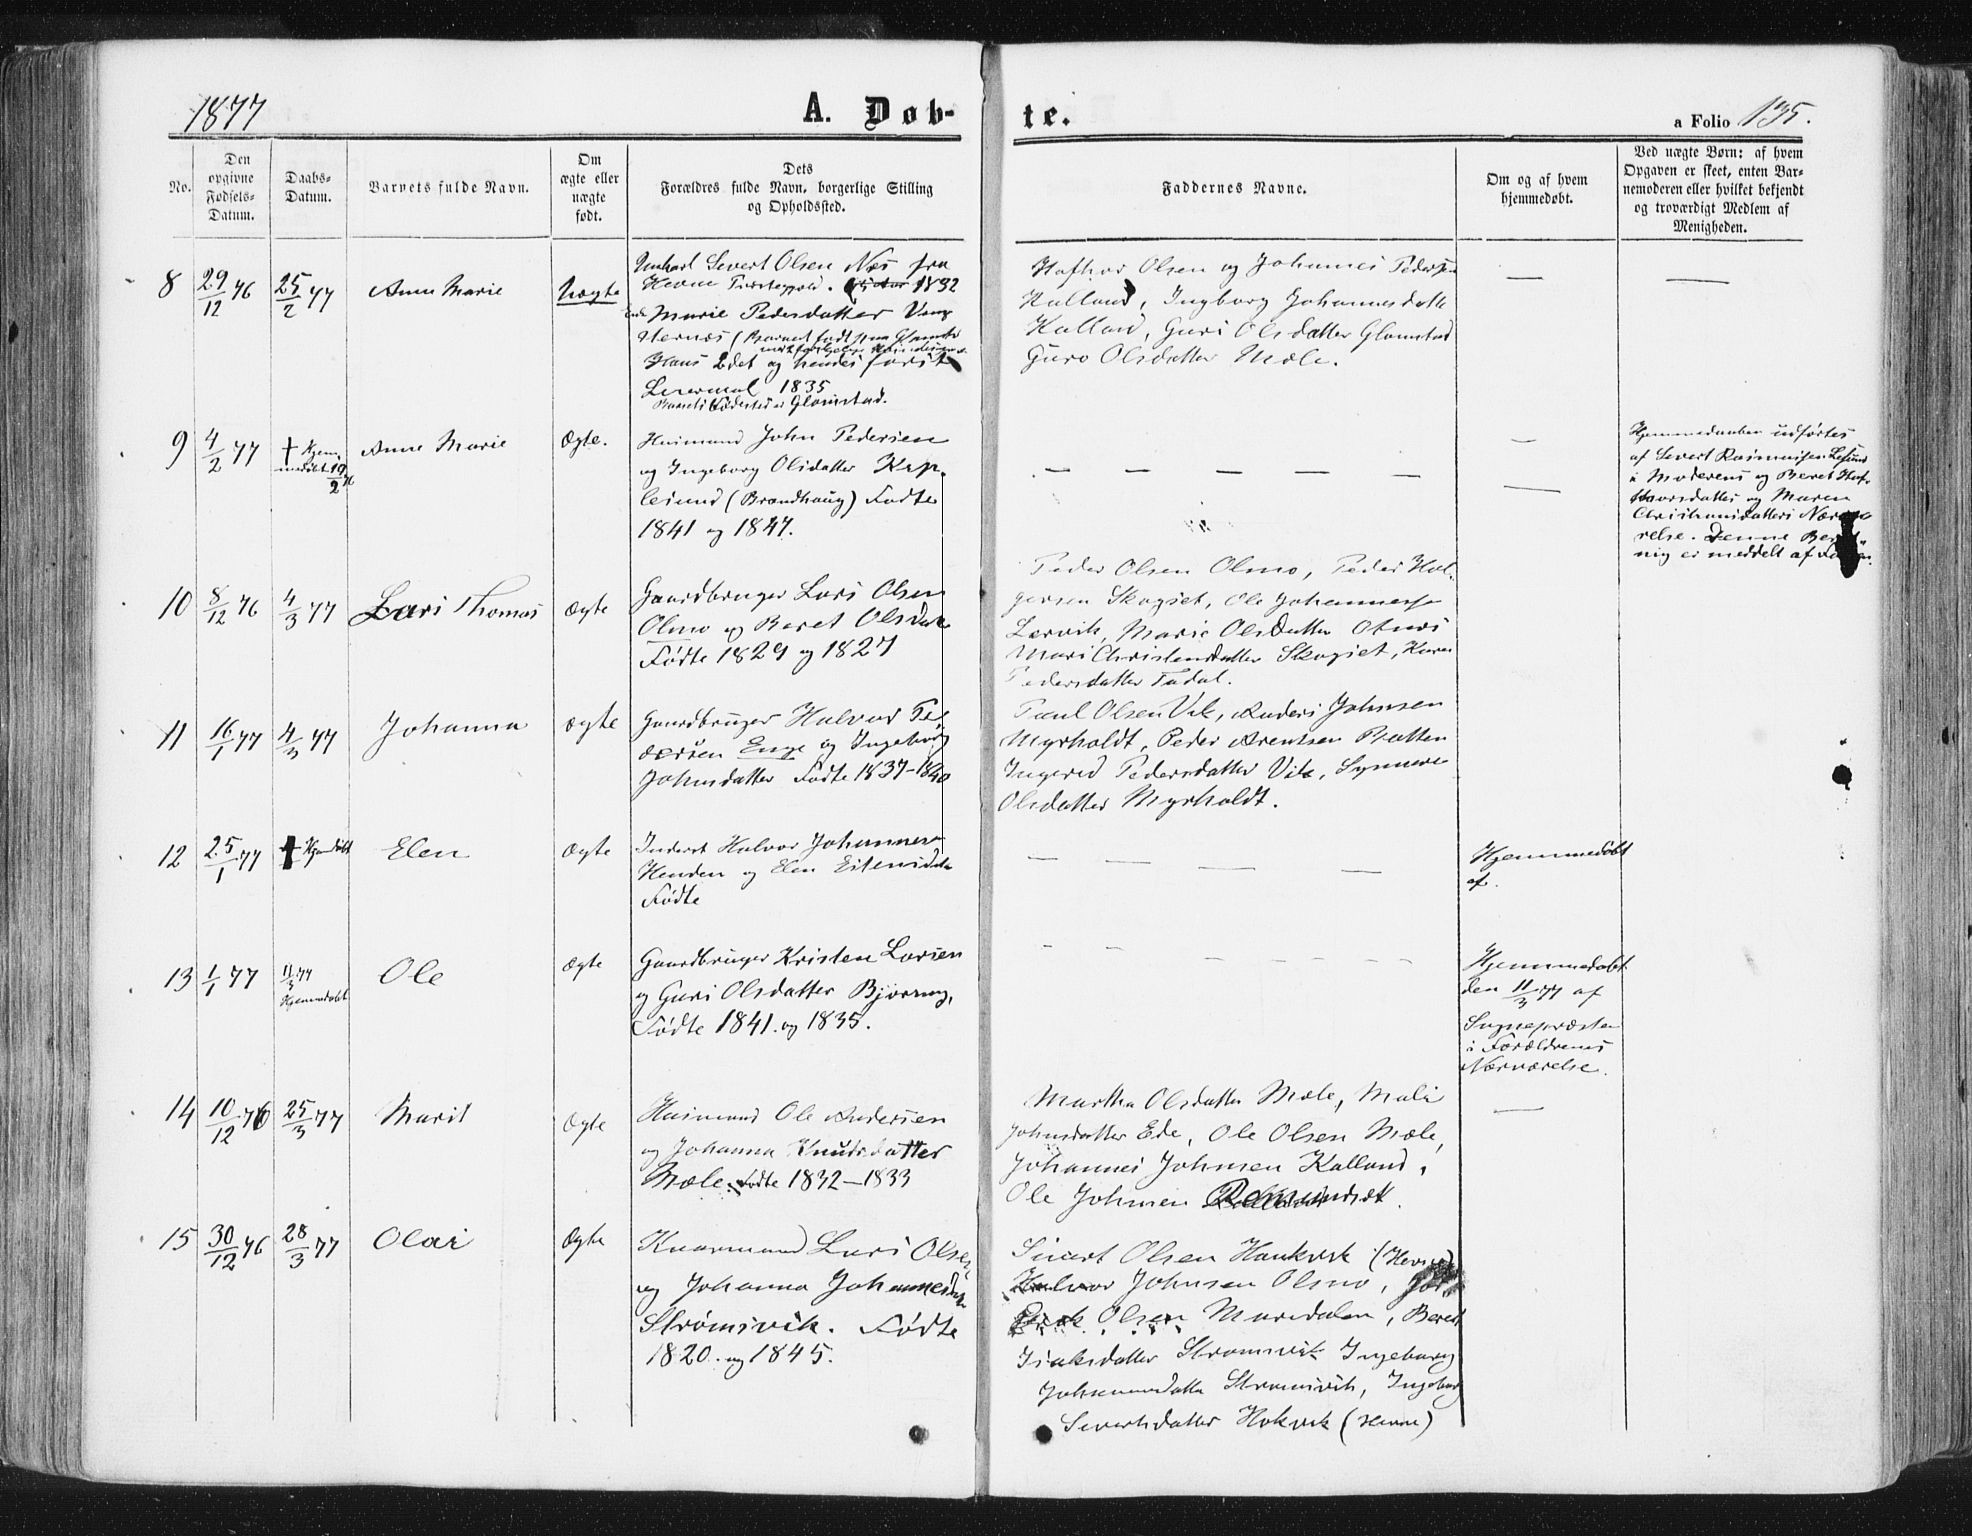 1877
A. Døb-
te.
a Folio 135.
No.
Den
opgivne
Fødsels-
Datum.
Daabs-
Datum.
Barnets fulde Navn.
Om
ægte eller
uægte
født.
Dets
Forældres fulde Navn, borgerlige Stilling
og Opholdssted.
Faddernes Navne.
Om og af hvem
hjemmedøbt.
Ved uægte Børn: af hvem
Opgaven er skeet, enten Bar-
nemoderen eller hvilket bekjendt
og troværdigt Medlem af
Menigheden.
8
29/12 76
25/2 77
Anne Marie
Uægte
Sivert Olsen Næs fra
Hevne 1832
Marie Pedersdatter
Hans 2det og hendes første
Leiermaal 1835
Barnets Fødested er Glamstad.
Olsen og Johannes Pedersen
Halland, Ingborg Johannesdatter
Halland, Guri Olsdatter Glamstad
Guro Olsdatter Mæle.
—
—
9
4/2 77
† Hjem-
medøbt 19/2
Anne Marie
Ægte.
Huusmand John Pedersen
og Ingeborg Olsdatter
(Brandhaug) Fødte
1841 og 1847.
— — — —
—
—
Hjemmedaaben udførtes
af Sivert Rasmussen
i Moderens og Beret
og Maren
Christiansdatters Nærvæ-
relse. Denne
er meddelt af
10
8/12 76
4/3 77
Lars Thomas
Ægte
Gaardbruger Lars Olsen
Olmo og Beret Olsdatter
Fødte 1829 og 1827
Peder Olsen Olmo, Peder Hal-
Skogset, Ole Johannessen
Lervik, Marie Olsdatter
Mari Christensdatter Skogset, Karen
Pedersdatter
11
16/1 77
4/3 77
Johanna
Ægte
Gaardbruger Halvor Pe-
dersen Enge og Ingeborg
Johnsdatter Fødte 1837–1840
Paul Olsen Vik, Anders Johnsen
Myrholdt, Peder Arentsen Bratten
Ingerid Pedersdatter Vik, Synnøve
Olsdatter Myrholdt.
12
25/1 77
† Hjemdøbt
Elen
Ægte
Inderst Halvor Johannesen
Henden og Elen
Fødte
— — — —
Hjemmedøbt
af.
13
1/1 77
11/3 77
Hjemmedøbt
Ole
Ægte
Gaardbruger Kristen Larsen
og Guri Olsdatter
Fødte 1841. og 1835.
— — — — — — —
Hjemmedøbt
den 11/3 77 af
Sognepræsten
i Forældrenes
Nærværelse.
14
10/12 76
25/3 77
Marit
Ægte
Huusmand Ole Andersen
og Johanna Knutsdatter
Mæle. Fødte 1832–1833
Martha Olsdatter Mæle, Mali
Johnsdatter Ede, Ole Olsen Mæle,
Johannes Johnsen Kalland,
Ole Johnsen
—
15
30/12 76
28/3 77
Olai
Ægte
Lars Olsen
og Johanna
Strømsvik. Fødte
1820. og 1845.
Sivert Olsen Haukvik (Hevne)
Halvor Johnsen Olmo,
Olsen Marsdalen, Beret
Isaksdatter Strømsvik Ingeborg
Johannesdatter Strømsvik, Ingeborg
Sivertsdatter Hokvik (Hevne)